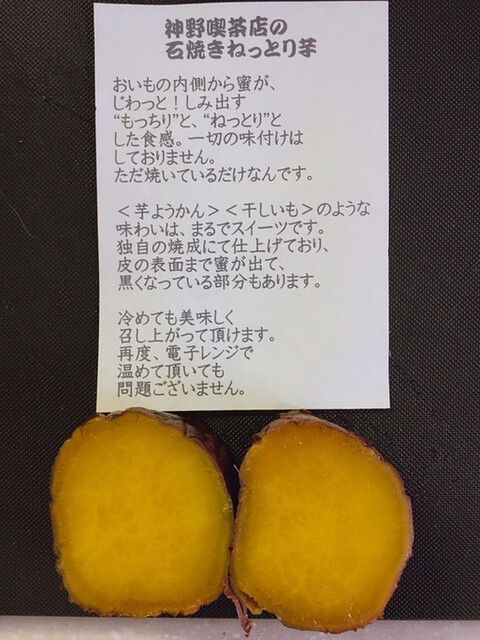 神野喫茶店の
石焼きねっとり芋
おいもの内側から蜜が、
じわっと！しみ出す
“もっちり”と、“ねっとり”と
した食感。一切の味付けは
しておりません。
ただ焼いているだけなんです。
＜芋ようかん＞＜干しいも＞のような
味わいは、まるでスイーツです。
独自の焼成にて仕上げており、
皮の表面まで蜜が出て、
黒くなっている部分もあります。
冷めても美味しく
召し上がって頂けます。
再度、電子レンジで
温めて頂いても
問題ございません。